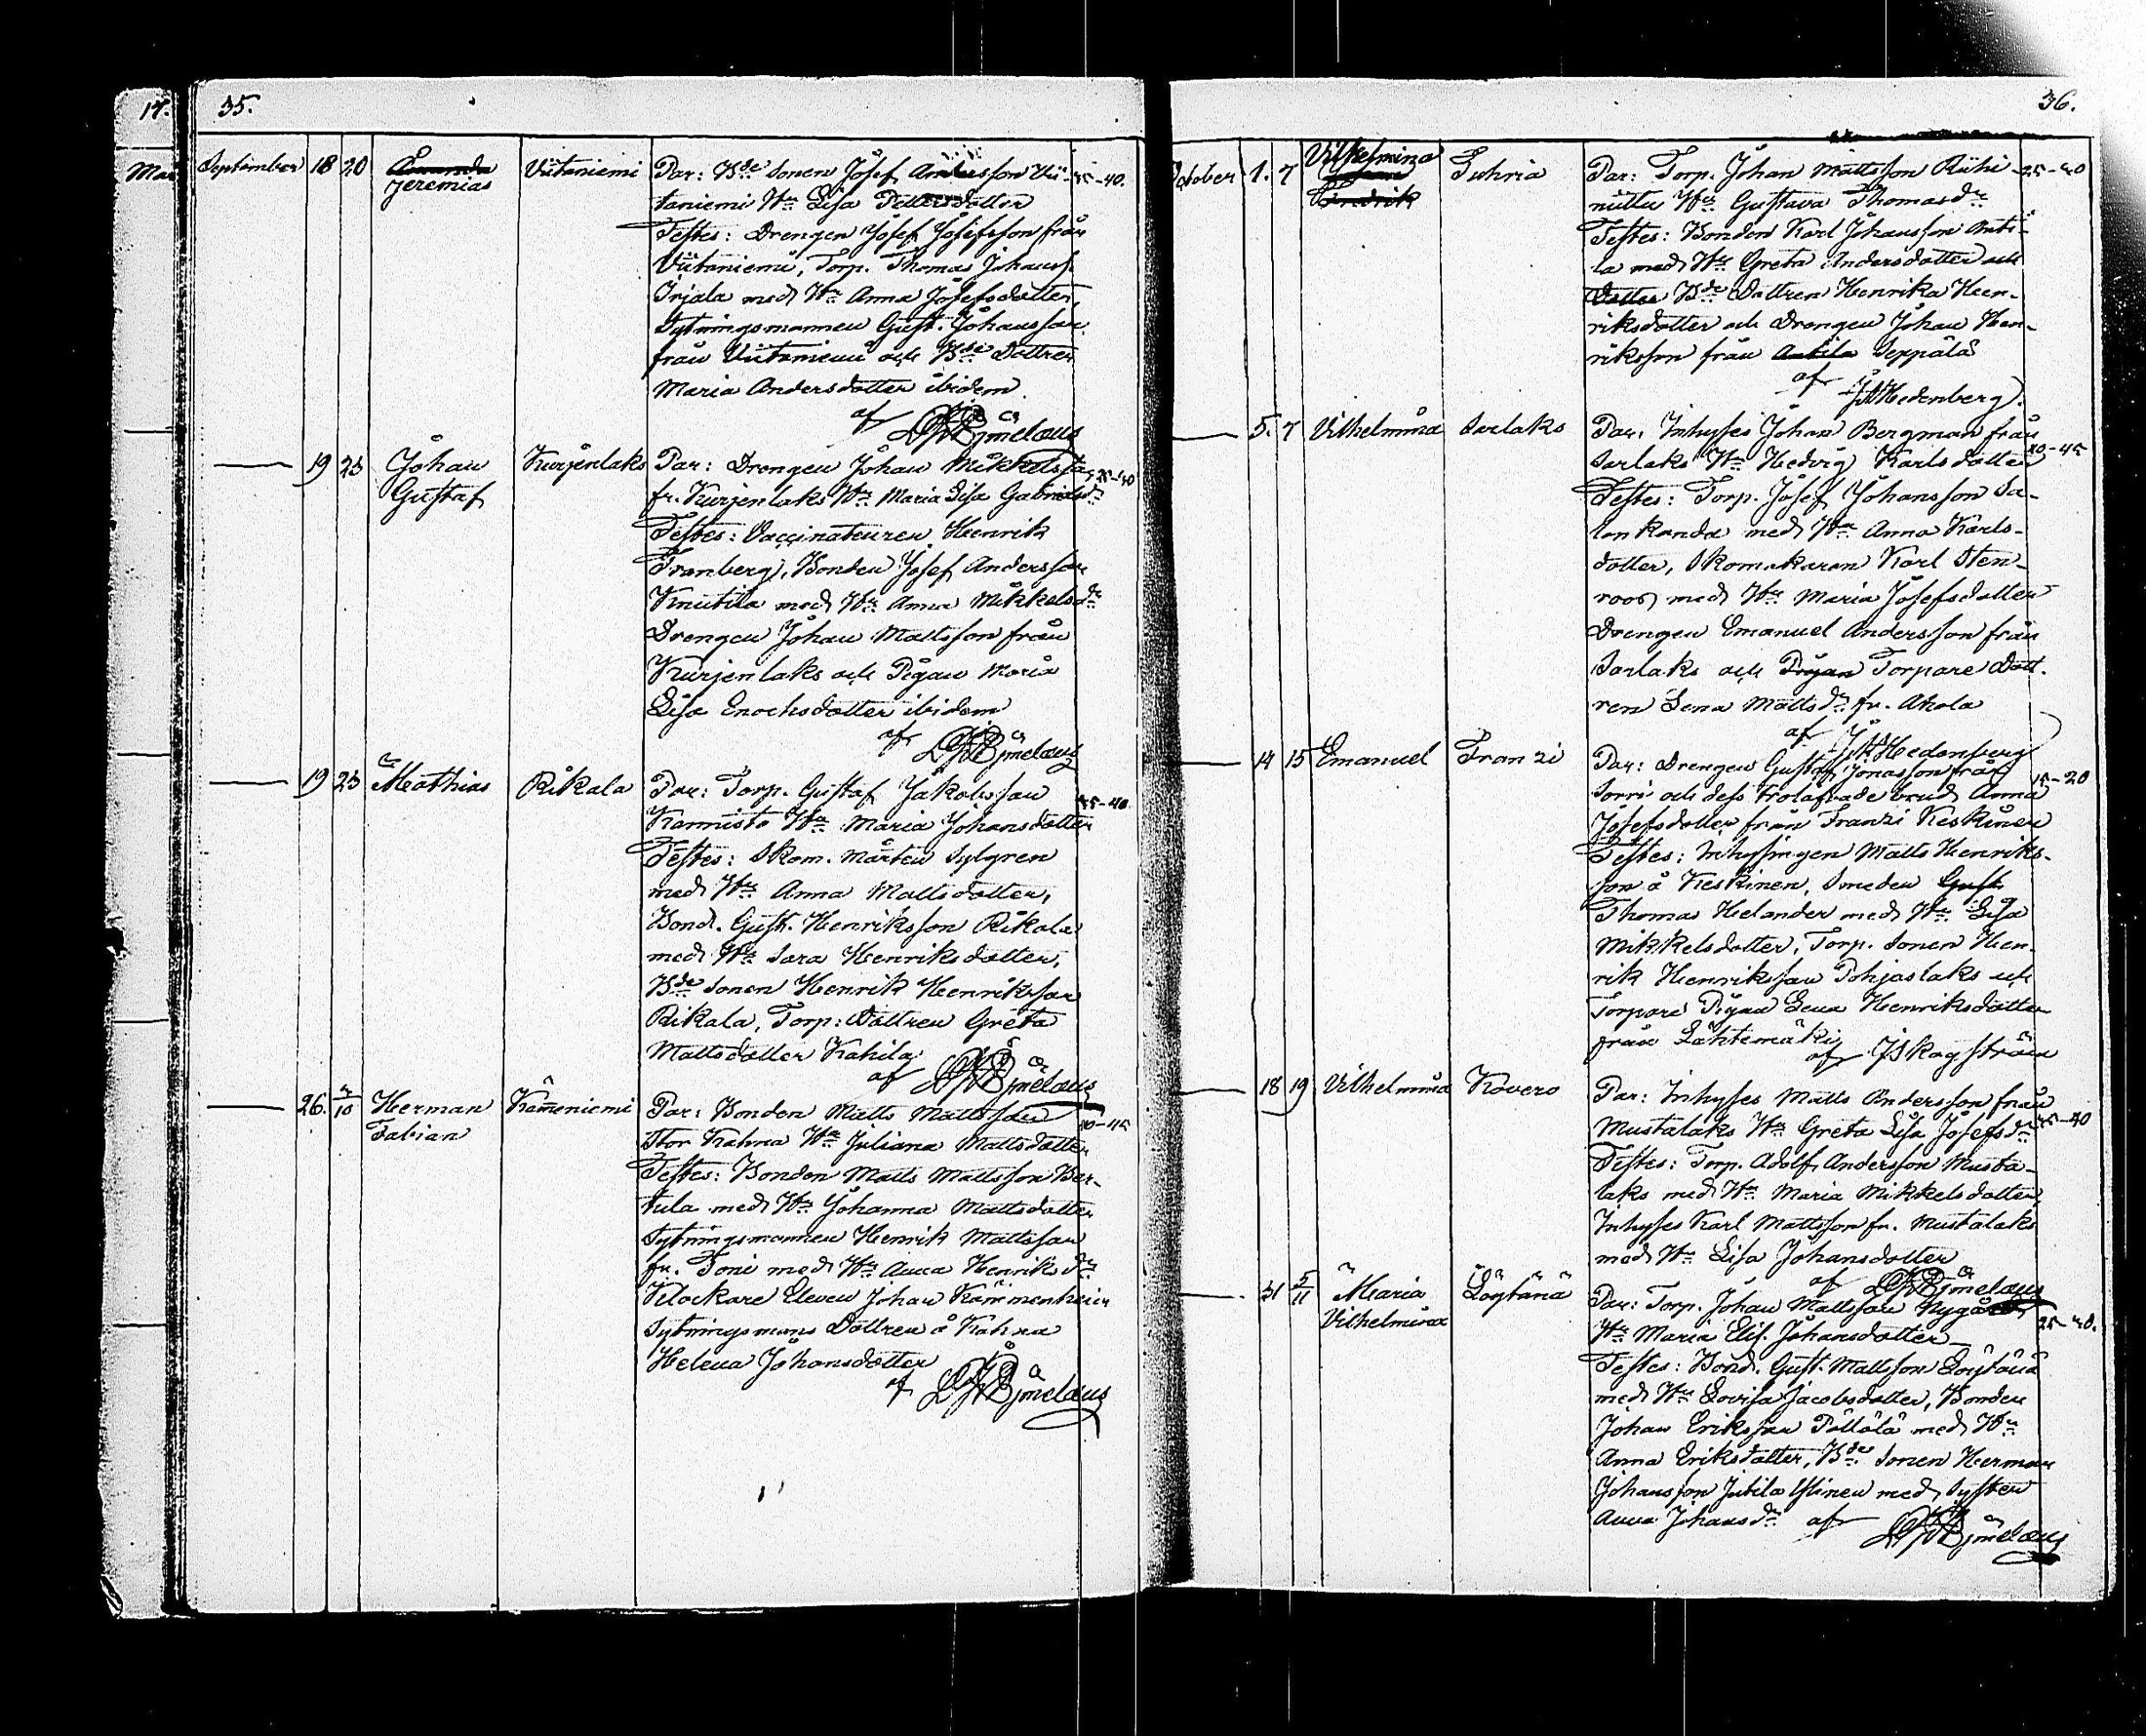 17.
35.
September 18 20 Amanda Viitaniemi Par: Bde Sonen Josef Andersson Vii- 35-40.
Jeremias
taniemi Hu Lisa Pettersdotter
Testes: Drengen Josef Josefsson från
Viitaniemi, Torp. Thomas Johanss.
Irjala med Hu Anna Josefsdotter,
Sytningsmannen Gust. Johansson
från Viitaniemi och Bde Dottren
Maria Andersdotter ibidem
af
19 23 Johan Kurjenlaks Par: Drengen Johan Mikkelsson 35-40
Gustaf
fr. Kurjenlaks Hu Maria Lisa Gabrielsdr
Testes: Vaccinateuren Henrik
Franberg, Bonden Josef Andersson
Knutila med Hu Anna Mikkelsdr
Drengen Johan Mattsson från
Kurjenlaks och Pigan Maria
Lisa Enochsdotter ibidem
af
19 23 Mathias Rikala Par: Torp. Gustaf Jakobsson 35-40
Kannisto Hu Maria Johansdotter
Testes: Skom. Mårten Sylgren
med Hu Anna Mattsdotter,
Bond. Gust. Henriksson Rikala
med Hu Sara Henriksdotter,
Bde Sonen Henrik Henriksson
Rikala, Torp: Dottren Greta
Mattsdotter Kahila
af
26. 2/10 Herman Kämeniemi Par: Bonden Matts Mattsson 40-45
Fabian
Stor Kahra Hu Juliana Mattsdotter
Testes: Bonden Matts Mattsson Ber-
tula med Hu Johanna Mattsdotter
Sytningsmannen Henrik Mattsson
fr. Toni med Hu Anna Henriksdr
Klockare Eleven Johan
Sytningsmans Dottren å Kahra
Helena Johansdotter
af
36.
October 1. 7 Vilhelmina Suhria Par: Torp. Johan Mattsson Riihi- 35-40
Fredrik
niittu Hu Gustava Thomasdr
Testes: Bonden Karl Johansson Anti-
la med Hu Greta Andersdotter och
Dotter Bde Dottren Henrika Hen-
riksdotter och Drengen Johan Hen-
riksson från Antila Seppälä
af Hedenberg.
5. 7 Vilhelmina Sarlaks Par: Inhyses Johan Bergman från
Sarlaks Hu Hedvig Karlsdotter 40-45
Testes: Torp. Josef Johansson Sa-
lonkanda med Hu Anna Karls-
dotter, Skomakaren Karl Sten-
roos med Hu Maria Josefsdotter
Drengen Emanuel Andersson från
Sarlaks och Pigan Torpare Dott-
ren Lena Mattsdr fr. Ahola
af Hedenberg
14 15 Emanuel Franzi Par: Drengen Gustaf Jonasson från 15-20
Sorri och dess trolofvade brud Anna
Josefsdotter från Franzi Keskinen
Testes: Inhysingen Matts Henriks-
son å Keskinen, Smeden Gust.
Thomas Helander med Hu Lisa
Mikkelsdotter, Torp. Sonen Hen-
rik Henriksson Pohjaslaks och
Torpare Pigan Lena Henriksdotter
från Lähtemäki
af J Skogström
18 19 Vilhelmina Kovero Par: Inhyses Matts Andersson från
Mustalaks Hu Greta Lisa Josefsdr 35-40
Testes: Torp. Adolf Andersson Musta-
laks med Hu Maria Mikkelsdotter,
Inhyses Karl Mattsson fr. Mustalaks
med Hu Lisa Johansdotter
af
31 5/11 Maria Löytänä Par: Torp. Johan Mattsson Nygård
Vilhelmina
Hu Maria Elis. Johansdotter 25-30.
Testes: Bond. Gust. Mattsson Löytänä
med Hu Lovisa Jacobsdotter, Bonden
Johan Eriksson Pöllölä med Hu
Anna Eriksdotter, Bde Sonen Herman
Johansson Jutila Ylinen med Systern
Anna Johansdr af